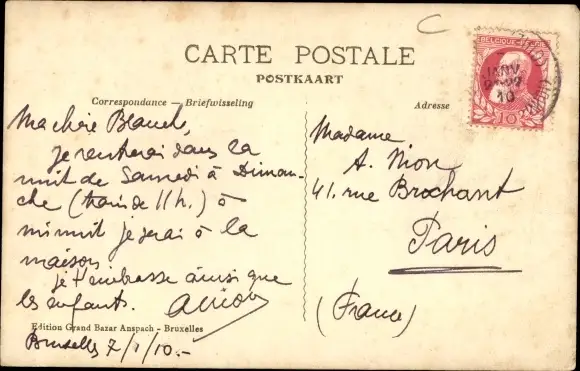 CARTE POSTALE
POSTKAART
Correspondance – Briefwisseling
Adresse
BELGIQUE
10
JANV
10
Ma chère Blanche,
je rentrerai dans la
nuit de Samedi à Diman-
che (train de 11 h.) à
minuit je serai à la
maison
je t'embrasse ainsi que
les enfants.
Edition Grand Bazar Anspach - Bruxelles
Bruxelles 7/1/10.-
Madame
A. Nion
41, rue Brochant
Paris
(France)